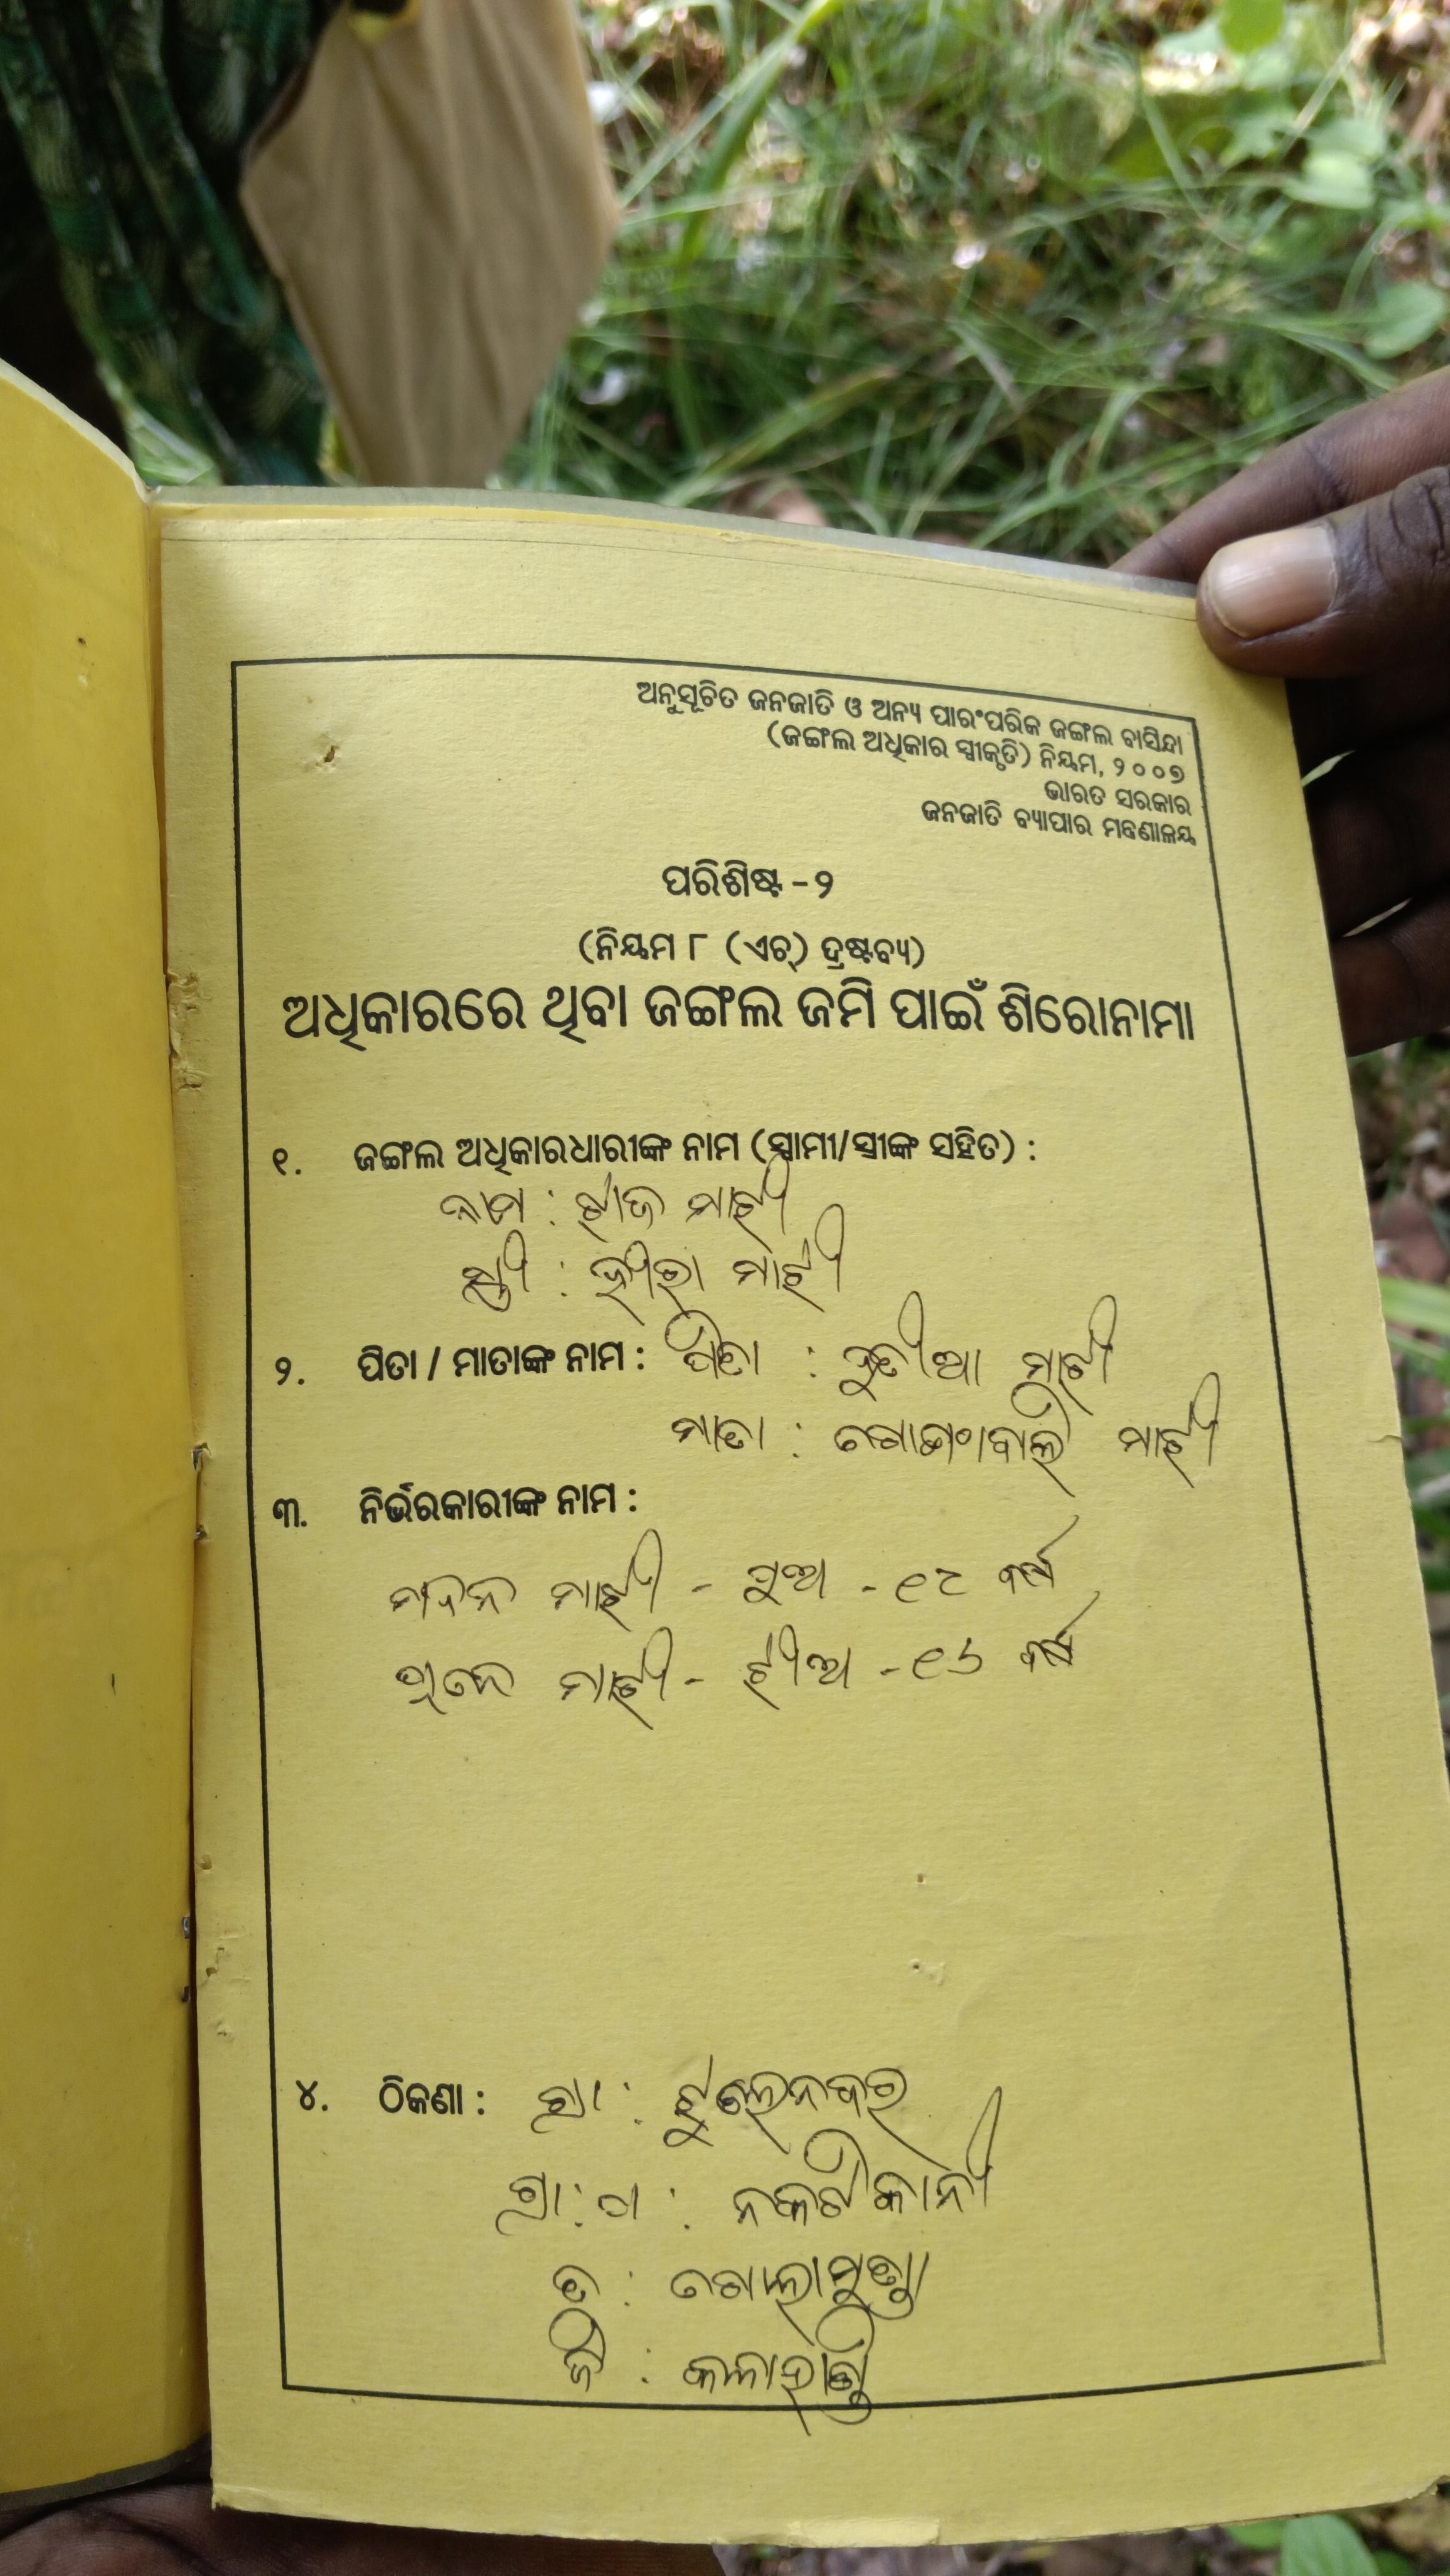 ଅନୁସୂଚିତ ଜନଜାତି ଓ ଅନ୍ୟ ପାରଂପରିକ ଜଙ୍ଗଲ ବାସିନ୍ଦା
(ଜଙ୍ଗଲ ଅଧିକାର ସ୍ୱୀକୃତି) ନିୟମ, ୨୦୦୭
ଭାରତ ସରକାର
ଜନଜାତି ବ୍ୟାପାର ମନ୍ତ୍ରଣାଳୟ
ପରିଶିଷ୍ଟ -୨
(ନିୟମ ୮ (ଏଚ୍) ଦ୍ରଷ୍ଟବ୍ୟ)
ଅଧିକାରରେ ଥିବା ଜଙ୍ଗଲ ଜମି ପାଇଁ ଶିରୋନାମା
୧. ଜଙ୍ଗଲ ଅଧିକାରଧାରୀଙ୍କ ନାମ (ସ୍ୱାମୀ/ସ୍ତ୍ରୀଙ୍କ ସହିତ) :
ନାମ : ମାଝୀ
ସ୍ତ୍ରୀ : ହୀରା ମାଝୀ
୨. ପିତା / ମାତାଙ୍କ ନାମ : ପିତା : ମାଝୀ
ମାତା : ମାଝୀ
୩. ନିର୍ଭରକାରୀଙ୍କ ନାମ :
ମଦନ ମାଝୀ - ପୁଅ - ୧୮ ବର୍ଷ
ମାଝୀ - ଝୀଅ - ୧୬ ବର୍ଷ
୪. ଠିକଣା : ଗ୍ରା :
ଗ୍ରା: ପ : ନକଟିକାନୀ
ତ : ଗୋଲାମୁଣ୍ଡା
ଜି : କଳାହାଣ୍ଡି